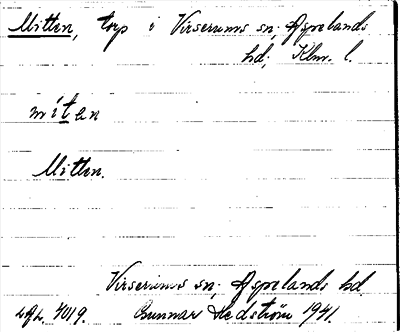 Mitten, torp i Virserums sn, Aspelands
hd, Klm. l.
mitan
Mitten.
Virserums sn, Aspelands hd.
Gunnar Hedström 1941.